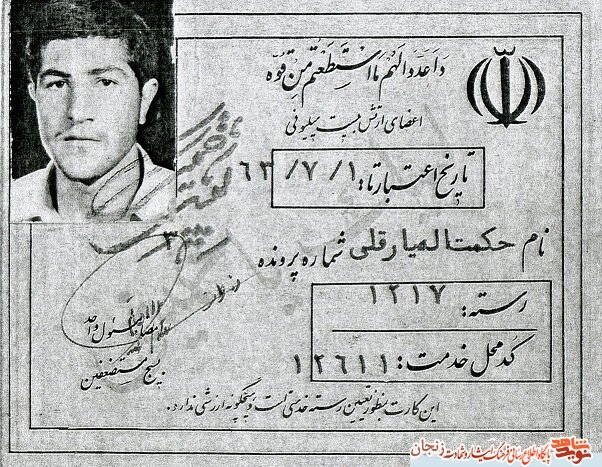 وَاَعِدّوا لَهُم مَا اسْتَطَعْتُم مِنْ قُوَّه
اعضای ارتش بیست میلیونی
تاریخ اعتبار تا: ۶۳/۷/۱
نام حکمت اله یارقلی شماره پرونده
رسته: ۱۲۱۷
کد محل خدمت: ۱۲۶۱۱
امضاء مسئول واحد
بسیج مستضعفین
این کارت بمنظور تعیین رسته خدمتی است و هیچگونه ارزشی ندارد.
نوید شاهد پایگاه اطلاع رسانی فرهنگ ایثار و شهادت زنجان